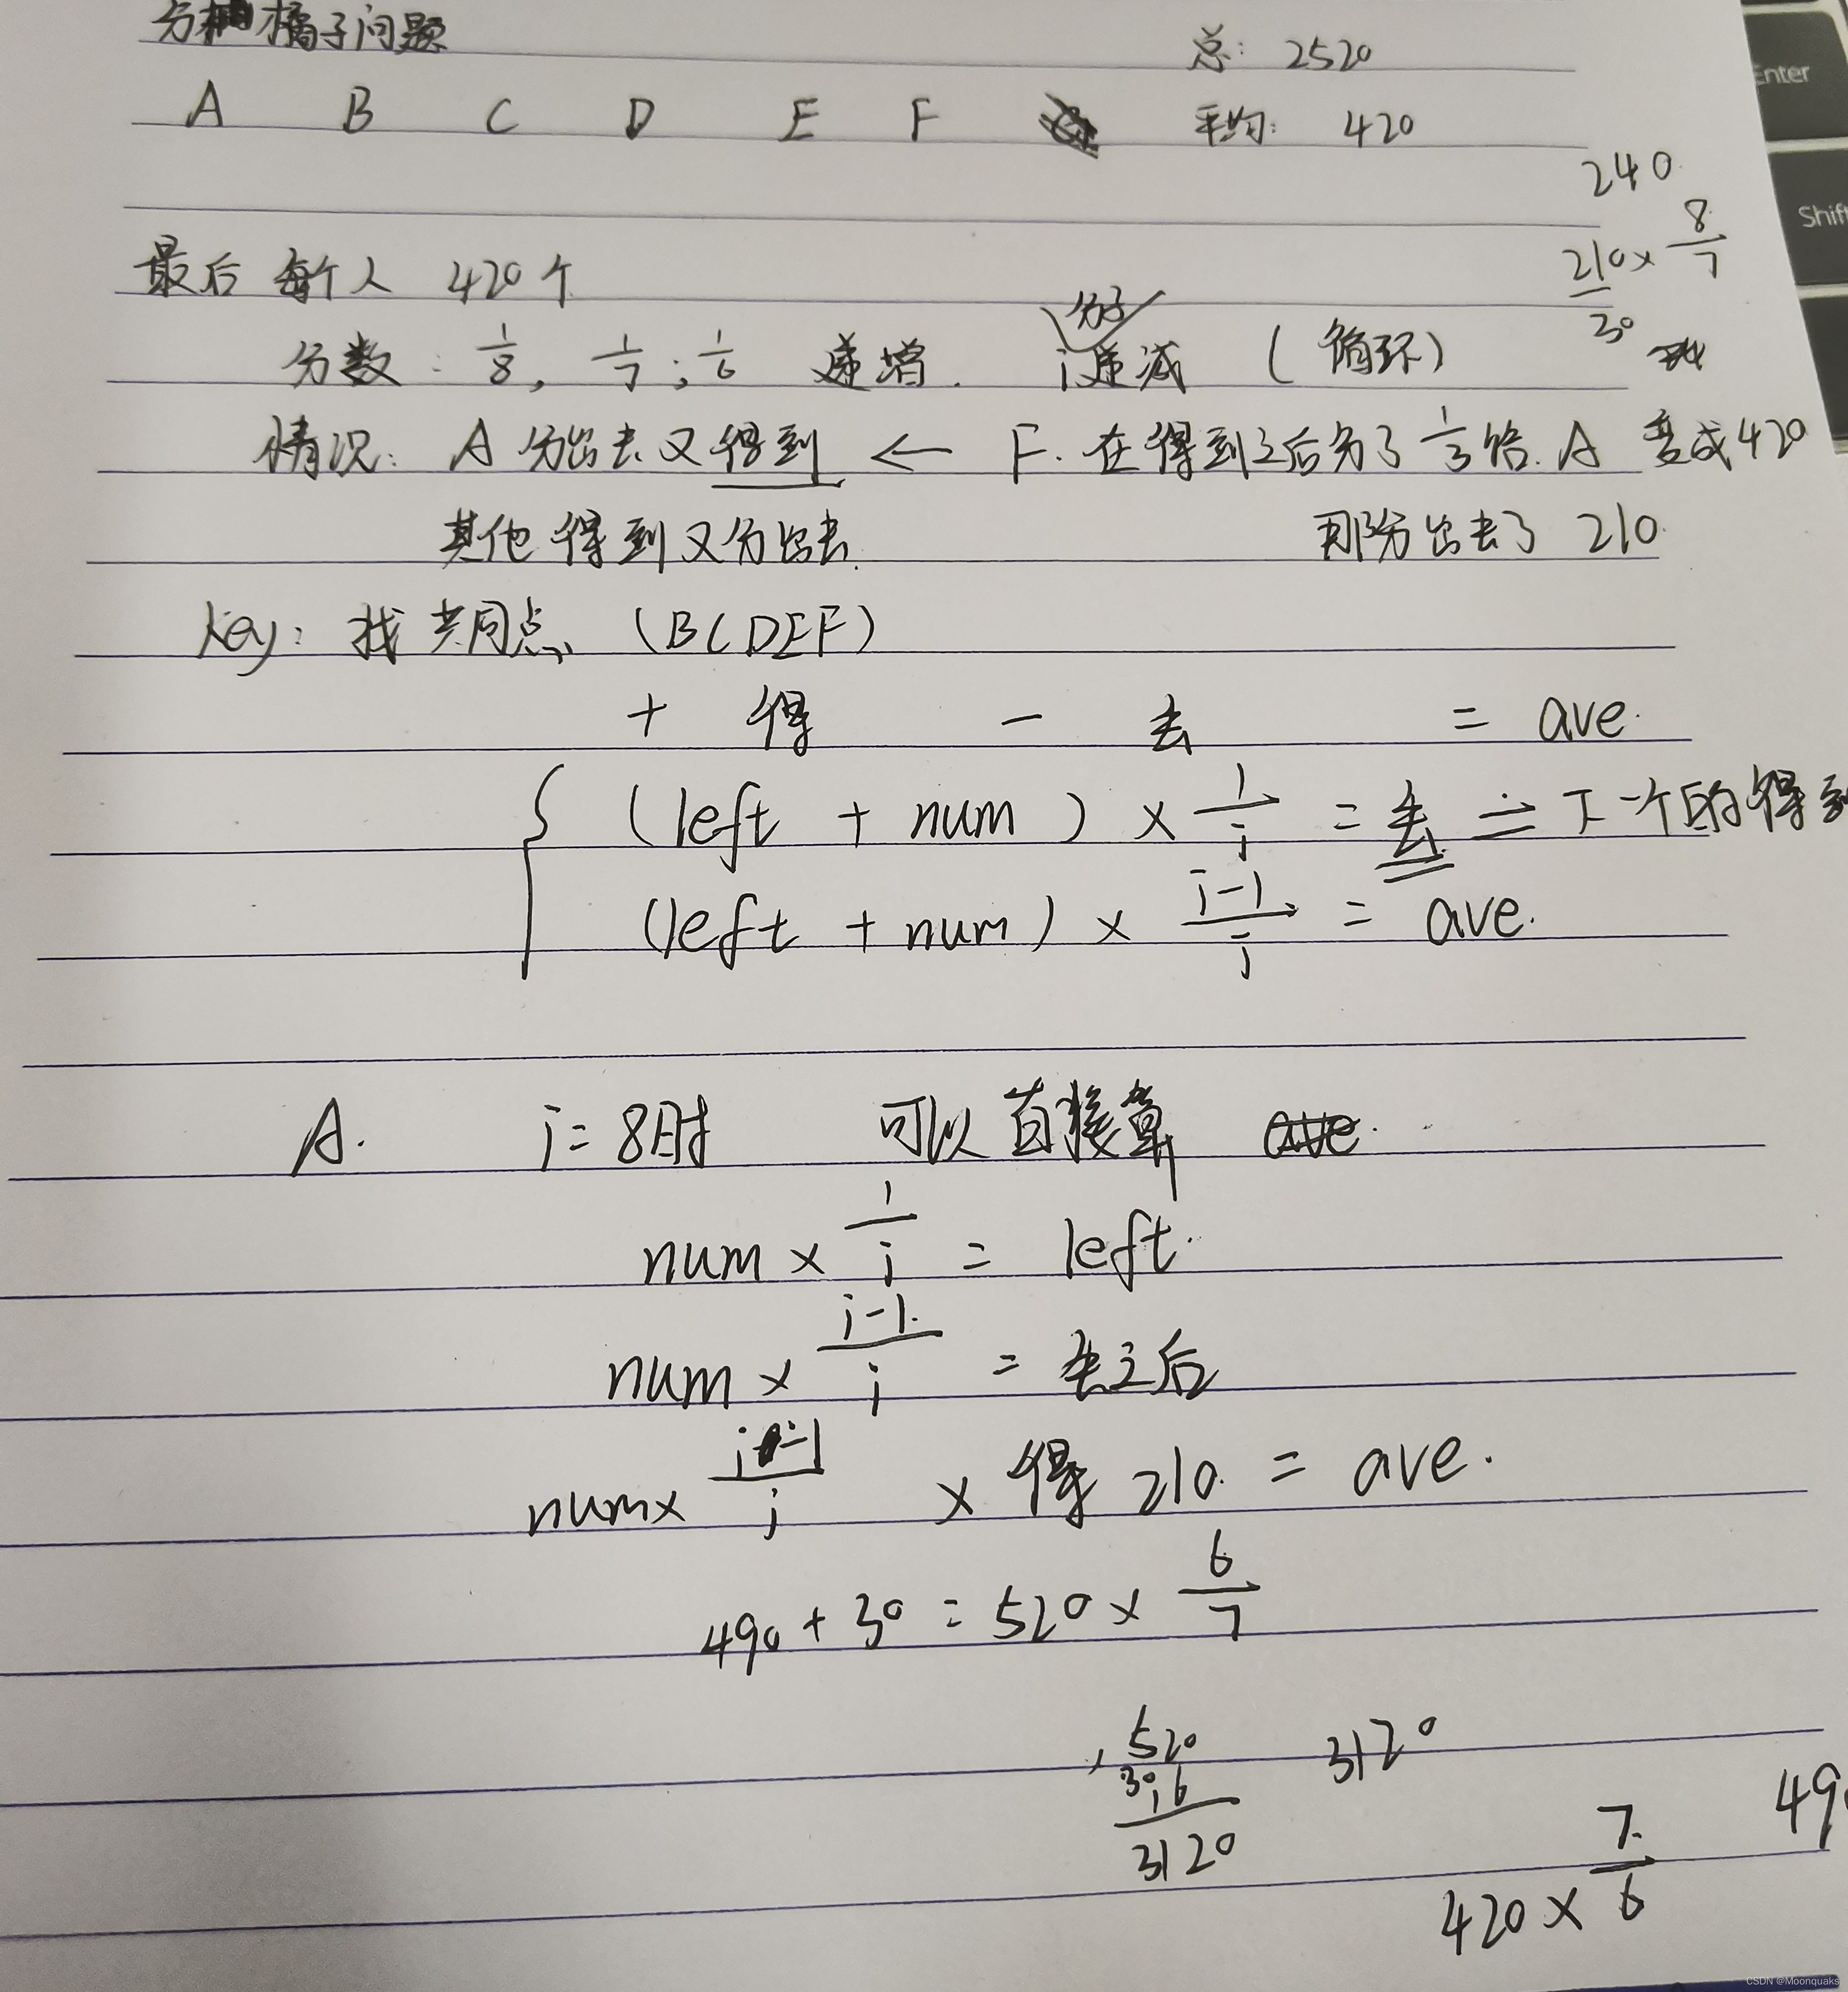 分橘子问题
总: 2520
A B C D E F
平均: 420
240
210 × 8/7
30
最后 每个人 420个
分子
分数: 1/8, 1/7; 1/6 递增. i递减 (循环)
情况: A 分出去又得到 ← F. 在得到之后分了 1/3 给 A 变成420
其他 得到又分出去. 那分出去了 210.
key: 找共同点 (BCDEF)
+ 得 - 去 = ave.
(left + num) × 1/i = 去 = 下一个的得到
(left + num) × i-1/i = ave.
A. i=8时 可以直接算 ave.
num × 1/i = left.
num × i-1/i = 去之后
num× i-1/i × 得 210. = ave.
490 + 30 = 520 × 6/7
520 3120
6
3120
49
420 × 7/6
Enter
Shif
CSDN @Moonquaks